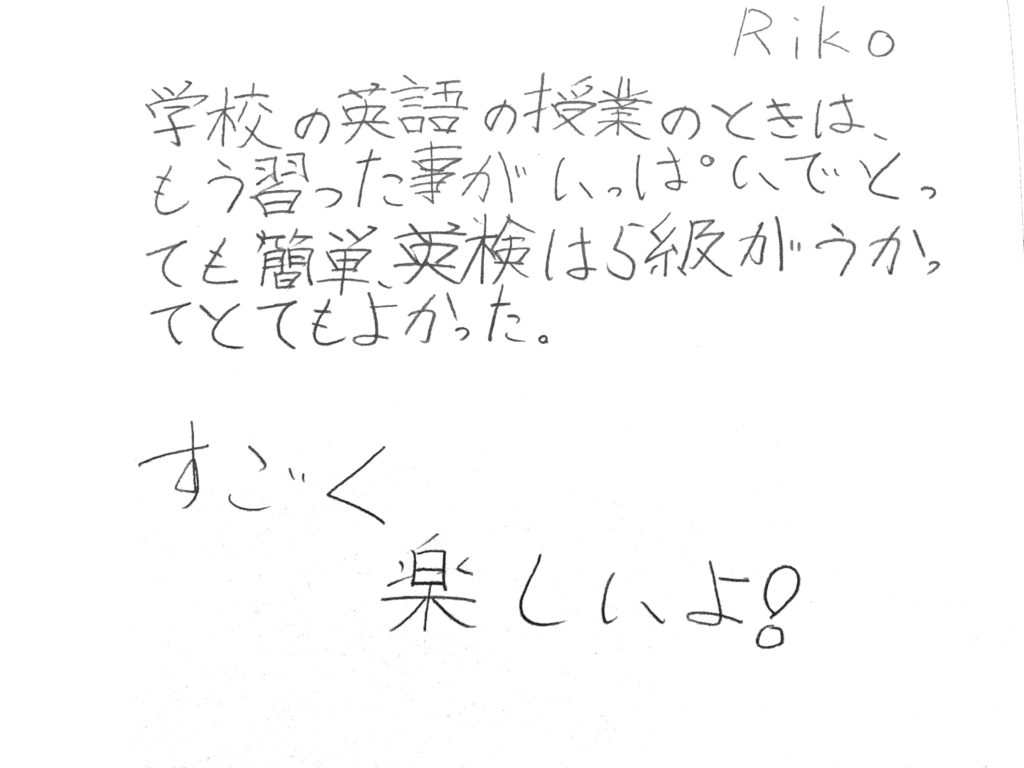 Riko
学校の英語の授業のときは、
もう習った事がいっぱいでとっ
ても簡単、英検は5級がうかっ
てとてもよかった。
すごく
楽しいよ!